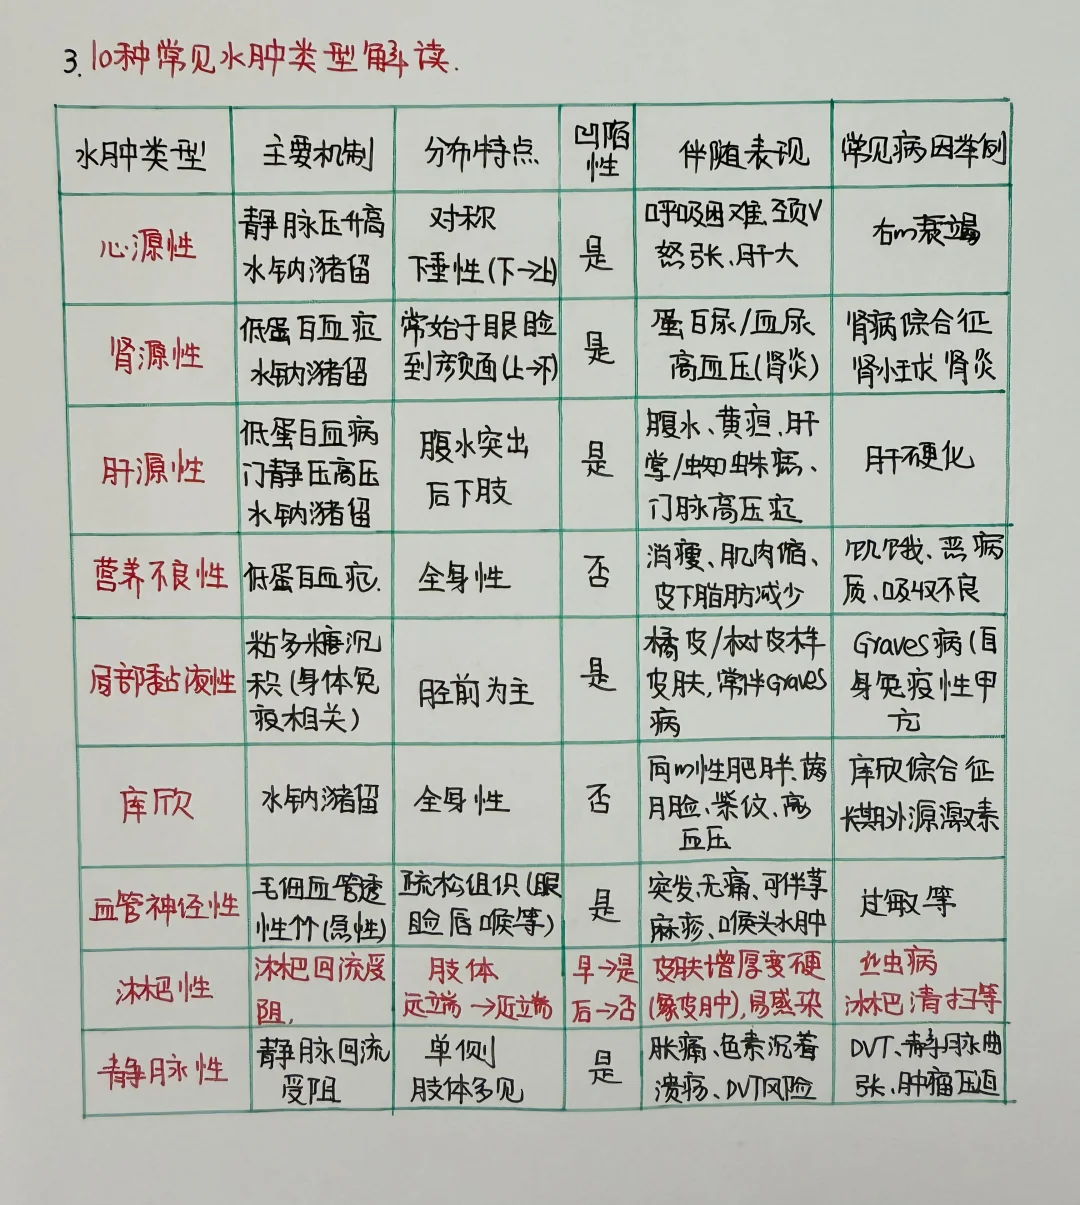 3. 10种常见水肿类型解读.
水肿类型 主要机制 分布特点 凹陷性 伴随表现 常见病因举例
心源性
静脉压升高
水钠潴留
对称
下垂性(下→上)
是
呼吸困难、颈V
怒张、肝大
右m衰竭
肾源性
低蛋白血症
水钠潴留
常始于眼睑
到颜面(上→下)
是
蛋白尿/血尿
高血压(肾炎)
肾病综合征
肾小球肾炎
肝源性
低蛋白血病
门静压高压
水钠潴留
腹水突出
后下肢
是
腹水、黄疸、肝
掌/蜘蛛痣、
门脉高压症
肝硬化
营养不良性
低蛋白血症.
全身性
否
消瘦、肌肉缩、
皮下脂肪减少
饥饿、恶病
质、吸收不良
局部黏液性
粘多糖沉
积(身体免
疫相关)
胫前为主
是
橘皮/树皮样
皮肤,常伴Graves
病
Graves病(自
身免疫性甲
亢
库欣
水钠潴留
全身性
否
向m性肥胖、满
月脸、紫纹、高
血压
库欣综合征
长期外源激素
血管神经性
毛细血管透
性个(急性)
疏松组织(眼
睑唇喉等)
是
突发、无痛、可伴荨
麻疹、喉头水肿
过敏等
淋杷性
淋杷回流受
阻,
肢体
远端→近端
早→是
后→否
皮肤增厚变硬
(象皮肿),易感染
丝虫病
淋杷清扫等
静脉性
静脉回流
受阻
单侧
肢体多见
是
胀痛、色素沉着
溃疡、DVT风险
DVT、静脉曲
张、肿瘤压迫